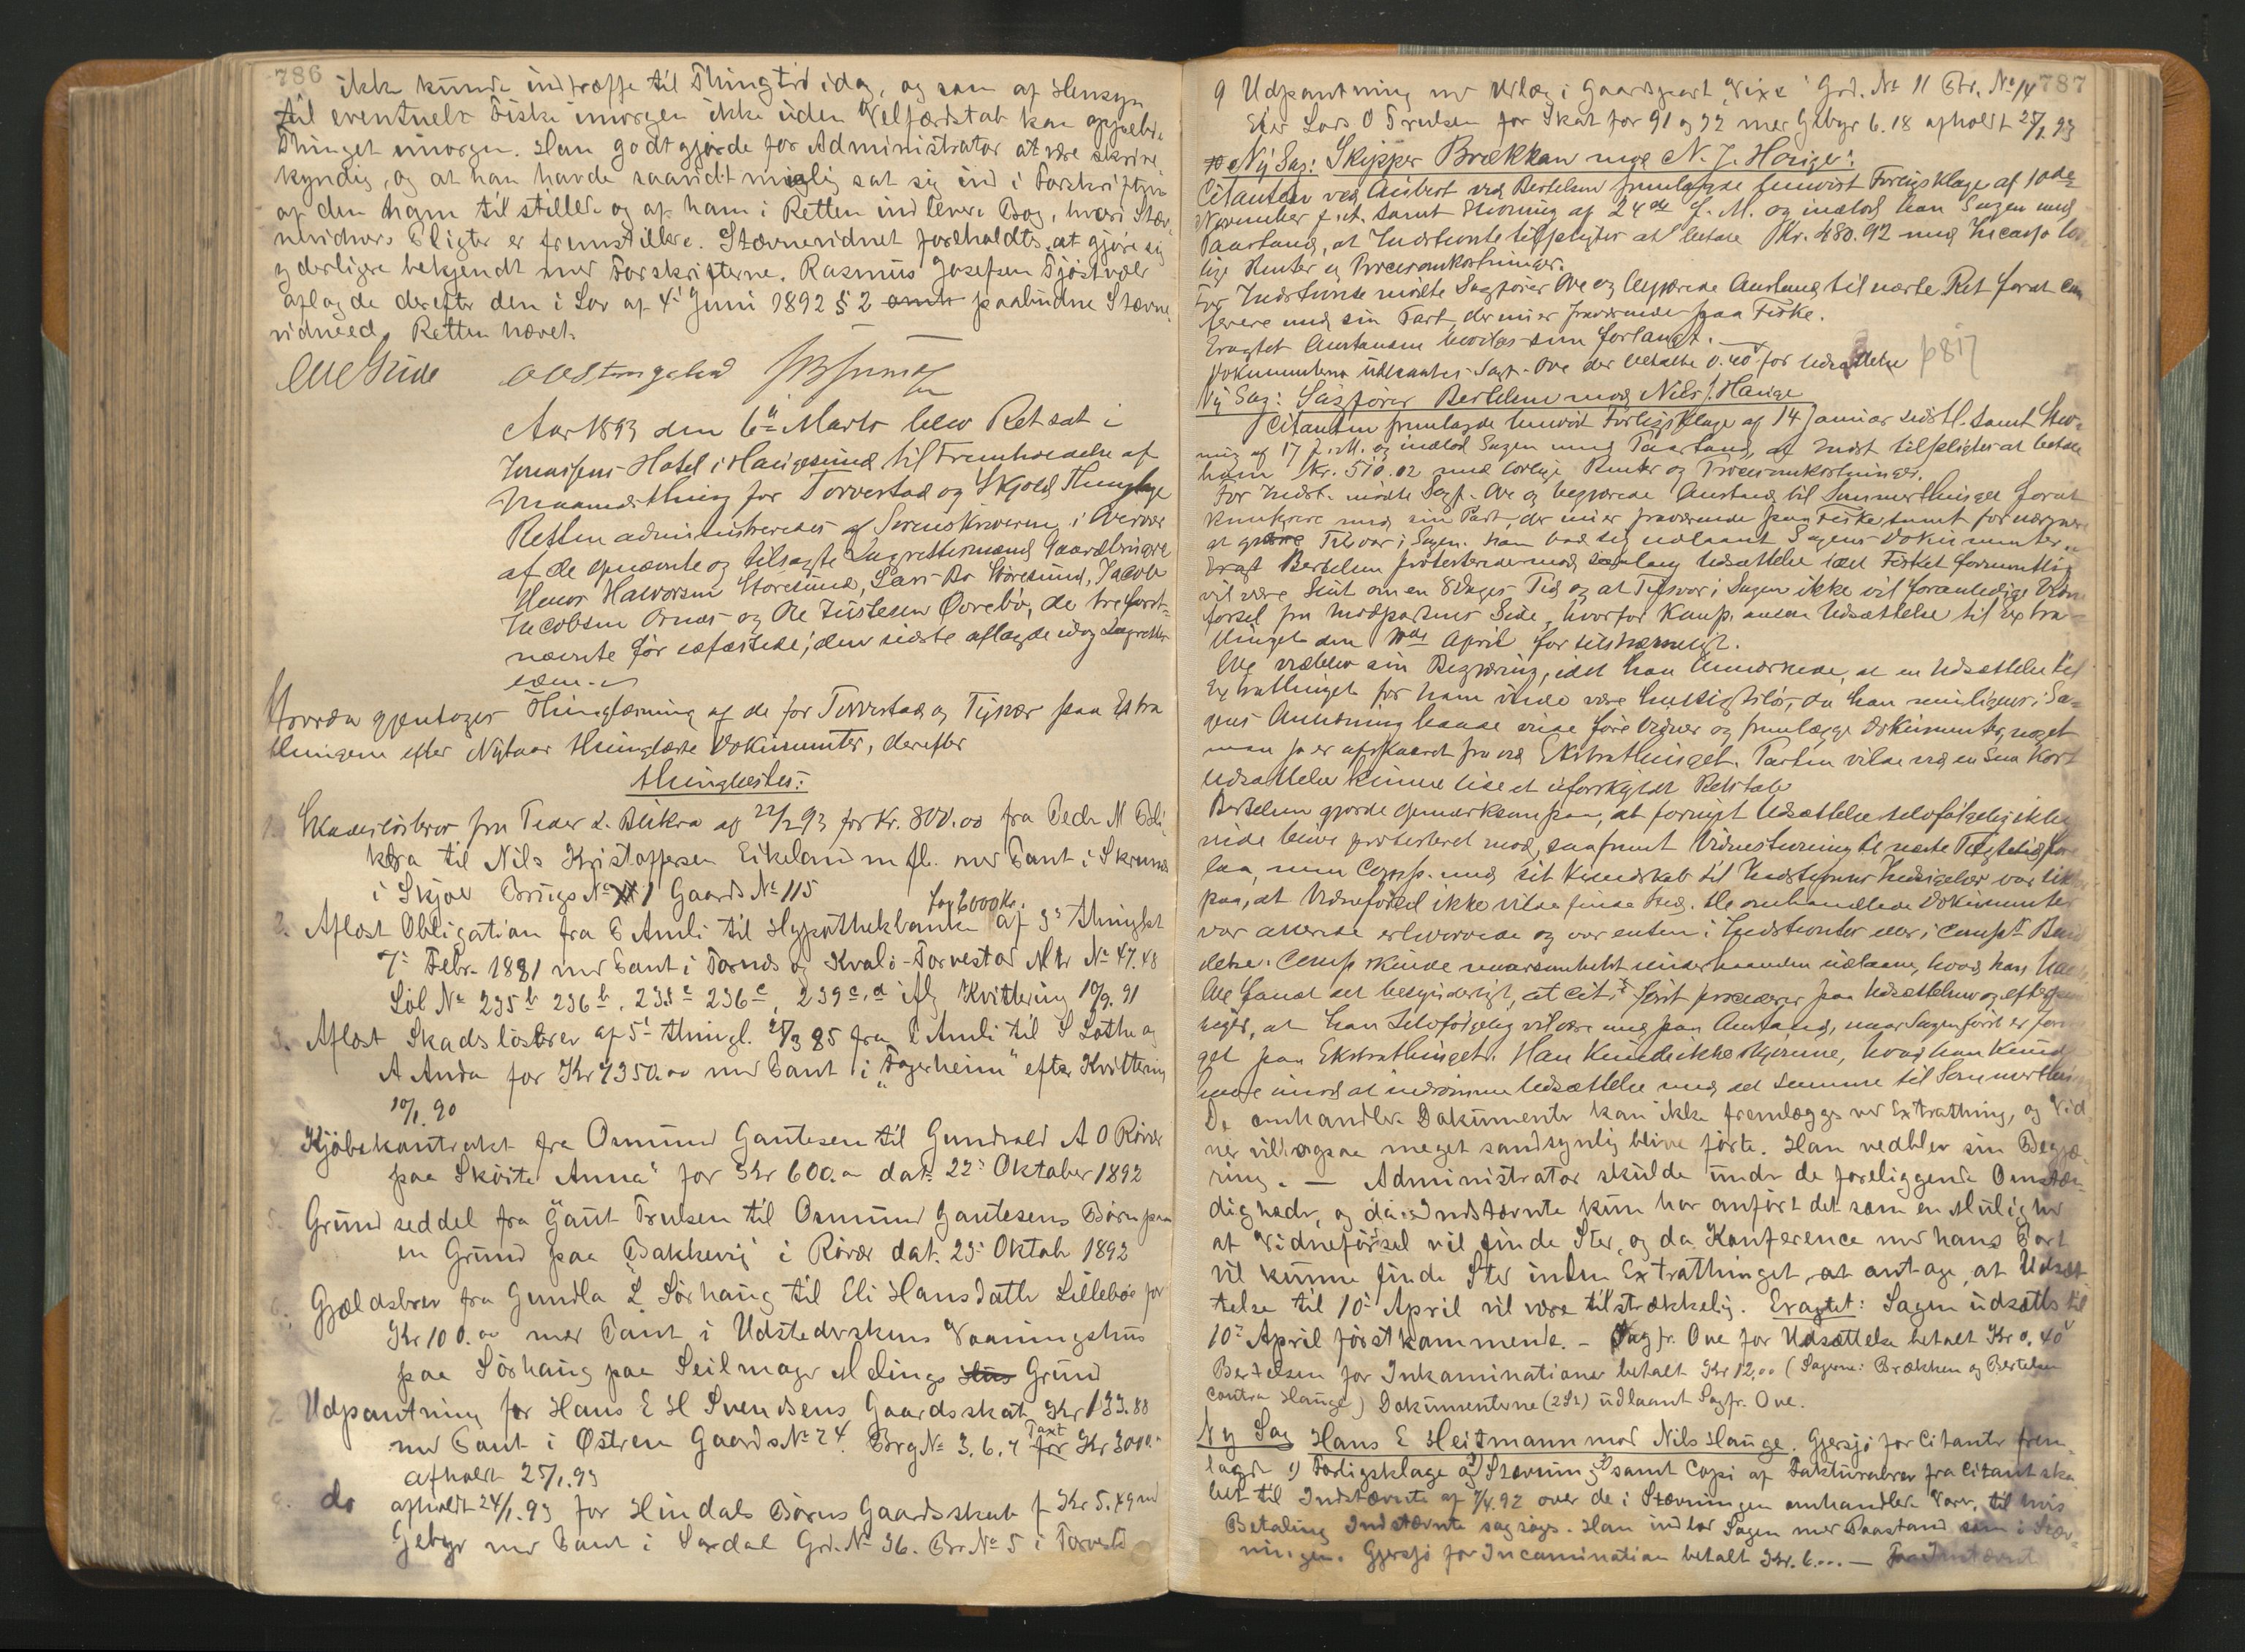 786
ikke kunde indtræffe til Thingtid idag, og som af Hensyn
til eventuelt Fiske imorgen ikke uden Velfærdstab kan oppebie
Thinget imorgen. Han godtgjorde for Administrator at være skrive
kyndig, og at han havde saavidt mulig sat sig ind i Forskriften
af den ham tilstillede og af ham i Retten indleverte Bog, hvori Stæv-
nevidners Pligter er fremstillede. Stævnevidnet foreholdtes at gjøre sig
yderligere bekjendt med Forskrifterne. Rasmus Josefsen Fjøstvedt
aflagde derefter den i Lov af 4de Juni 1892 § 2 paabudne Stævne
vidneed. Retten hævet.
Aar 1893 den 6te Marts blev Ret sat i
Jonassens Hotel i Haugesund til Fremholdelse af
Maanedsthing for Torvestad og Skjold Thinglag
Retten administreredes af Sorenskriveren i Overvær
af de opnævnte og tilsagte Lagrettesmænd Gaardbrugere
Hener Halvorsen Storesund, Lars Bo Storesund, Jacob
Jacobsen Ornes og Ole Justesen Øvrebø, de tre først-
nævnte før edfæstede; den sidste aflagde idag Lagrettes
edn.
Hvorda gjentoges Thinglæsning af de for Torvestad og Tysvær paa Extra
thingene efter Nytaar thinglæste Dokumenter, derefter
thinglæstes:
1. Skadesløsbrev fra Peder L. Blikra af 22/2 93 for Kr. 800.00 fra Peder M Bli-
kra til Nils Kristoffersen Eikeland m fl. med Pant i
i Skjol Brugs No 1 Gaards No 115
for 6000 Kr.
2. Aflæst Obligation fra E Amli til Hypothekbanken af 3s thinglæst
7s Febr. 1881 med Pant i Tornes og Kvalø-Torvestad Mtr No 47.48
Løb No 235b 236b, 235c 236c, 239c,d iflg Kvittering 10/9. 91
3. Aflæst Skadsløsbrev af 5t thingl. 25/3 85 fra E Amli til S Lothe og
A Anda for Kr 7350.00 med Pant i "Fagerheim" efter Kvittering
10/1. 90
4. Kjøbekontrakt fra Osmund Gautesen til Gundvald A O Røvær
paa Skøite "Anna" for Kr 600.00 dat. 22s Oktober 1892
5. Grundseddel fra Gaut Trulsen til Osmund Gautesens Børn paa
en Grund paa "Bakkevig" i Røvær dat. 25s Oktob 1892
6. Gjældsbrev fra Gundla L Sørhaug til Eli Hansdatter Lillebøe for
Kr 100.00 med Pant i Udstederskens Vaaningshus
paa Sørhaug paa Seilmager Mælings Hus Grund
7. Udpantning for Hans E H Svendsens Gaardsskat Kr 133.88
med Pant i Østrem Gaards No 24. Brg No 3. 6. 7 for Taxt Kr 3000.00
afholdt 25/1. 93
8. do afholdt 24/1. 93 for Hindals Børns Gaardsskat f Kr 5.49 med
Gebyr med Pant i Sørdal Grd. No 36. Br. No 5 i Torvestd
787
9 Udpantning med Udlæg i Gaardpart "Vixe" Grd. No 11 Br. No 14
Eier Lars O Trulsen for Skat for 91 og 92 med Gebyr 6.18 afholdt 25/1 93
Ny Sag: Skipper Brækken mod N. J. Hauge:
Citanten ved Aubert ved Bertelsen fremlagde henvist Forligsklage af 10de
November f. A. samt Stevning af 24de f. M. og indlod han Sagen med
Paastand, at Indstevnte tilpligtes at betale Kr. 480.92 med Incasso lov-
lige Renter og Procesomkostninger.
For Indstevnte mødte Sagfører Ove og begjærede Anstand til næste Ret forat con
ferere med sin Part, der nu er fraværende paa Fiske.
Eragtet Anstanden bevilges som forlangt.
Dokumenterne udlaantes Sagf. Ove der betalte 0.40 for Udsættelse
p 817
Ny Sag: Sagfører Bertelsen mod Niels J. Hauge
Citanten fremlagde henvist Forligsklage af 14 Januar sidstl. samt Stev-
ning af 17 f. M. og indlod Sagen med Paastand, at Indst tilpligtes at betale
ham Kr. 510.02 med lovlige Renter og Procesomkostninger.
For Indst. mødte Sagf. Ove og begjærede Anstand til Sommerthinget forat
konferere med sin Part, der nu er fraværende paa Fiske samt for nærmere
at gjøre Tilsvar i Sagen. Han bad sig udlaant Sagens Dokumenter.
Bertelsen protesterede mod saalang Udsættelse idet Fisket formentlig
vil være Slut om en 8 Dages Tid og at Tilsvar i Sagen ikke vil foranledige Vidne
førsel fra Modpartens Side, hvorfor Komp. anser Udsættelse til Extra
thinget den 10de April for tilstrækkeligt.
Ove vedblev sin Begjæring, idet han bemærkede, at en Udsættelse til
Extrathinget for ham vilde være hensigtsløs, da han muligens i Sa-
gens Anledning baade vilde føre Vidner og fremlægge Dokumenter, noget
man jo er afskaaret fra ved Extrathinget. Parten vilde ved en saa kort
Udsættelse kunne lide et uforskyldt Retstab
Bertelsen gjorde opmærksom paa, at fornyet Udsættelse selvfølgelig ikke
vilde blive protesteret mod, saafremt Vidnestevning til næste Tægtetid fore
laa, men Comp. med sit Kjendskab til Indstevntes Indsigelser var sikker
paa, at Vidneførsel ikke vilde finde Sted. De omhandlede Dokumenter
var allerede erhvervede og var enten i Indstevntes eller i Compts Besid
delse. Comp. skulde uvarsomhelst underhaanden udlaane, hvad han havde
Ove fandt det besynderligt, at Citten først procederer paa Udsættelsen og efterpaa
siger, at han selvfølgelig vil være med paa Anstand, naar Sagen først er fore
gaet paa Ekstrathinget. Han kunde ikke skjønne, hvad han kunde
have imod at indrømme Udsættelse med det samme til Sommerthin
De omhandlede Dokumenter kan ikke fremlægges ved Extrathing, og Vid
ner vil ogsaa meget sandsynlig blive førte. Han vedblev sin Begjæ-
ring. — Administrator skulde under de foreliggende Omstæn-
digheder, og da Indstævnte kun har anført det som en Mulighed
at Vidneførsel vil finde Sted, og da Konference med hans Part
vil kunne finde Sted inden Extrathinget, at antage, at Udsæt
telse til 10s April vil være tilstrækkelig. Eragtet: Sagen udsættes til
10s April førstkommende. — Sagfr. Ove for Udsættelse betalt Kr 0.40
Bertelsen for Inkaminationer betalt Kr 12,00 (Sagerne: Brækken og Bertelsen
contra Hauge) Dokumenterne (2 St) udlaant Sagfr. Ove.
Ny Sag Hans E Heitmann mod Nils Hauge. Gjersjø for Citanten frem-
lagde 1) Forligsklage og 2) Stævning samt Copi af Fakturabrev fra Citantska
bet til Indstævnte af 7/4.92 over de i Stævningen omhandlede Varer, til hvis
Betaling Indstævnte sagsøgs. Han indlod Sagen med Paastand som i Stæv-
ningen. Gjersjø for Incamination betalt Kr. 6... — For Indstævnte